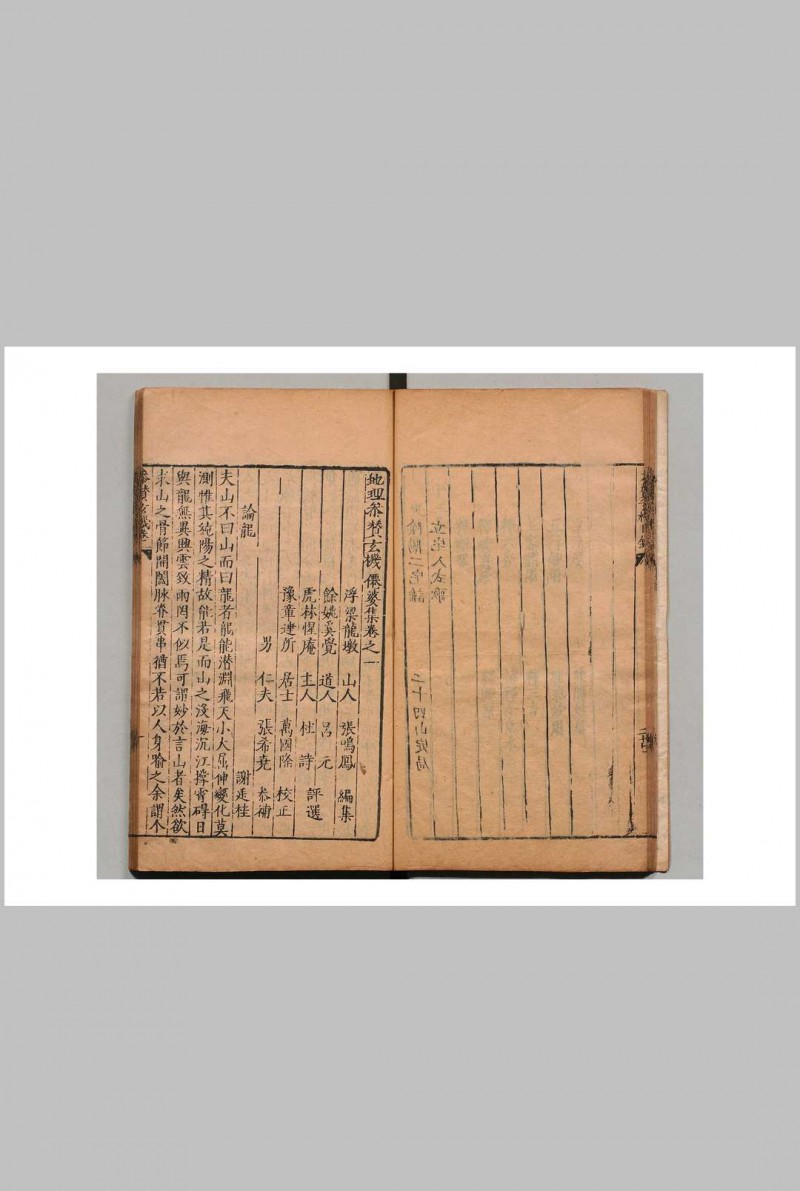 地理叅賛玄機僊婆集卷之一
浮梁龍墩 山人 張鳴鳳 編集
餘姚奚覺 道人 呂元
虎林惺庵 主人 杜詩 評選
豫章連所 居士 萬國隆 校正
男 仁夫 張希堯 恭補
謝廷桂
論龍
夫山不曰山而曰龍者龍能潜淵飛天小大屈伸變化莫
測惟其純陽之精故能若是而山之淺海沉江撑霄碍日
與龍無異興雲致雨罔不似焉可謂妙於言山者矣然欲
求山之骨節開闔脉脊貫串猶不若以人身喻之余謂个